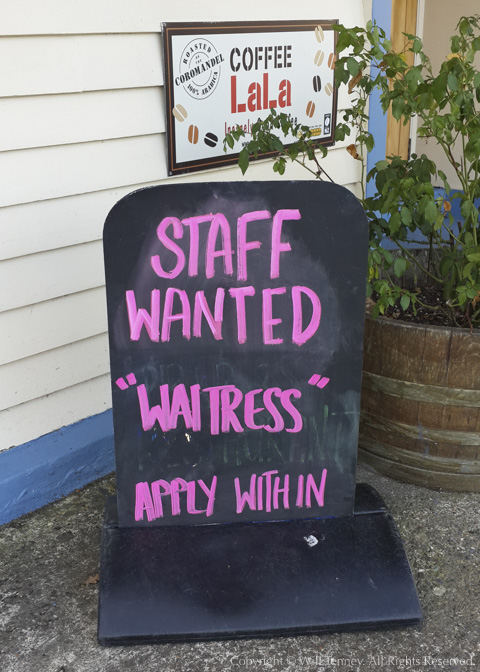 ROASTED
IN THE
COROMANDEL
100% ARABICA
COFFEE
LaLa
STAFF
WANTED
"WAITRESS"
APPLY WITHIN
Copyright © Will Jenney. All Rights Reserved.